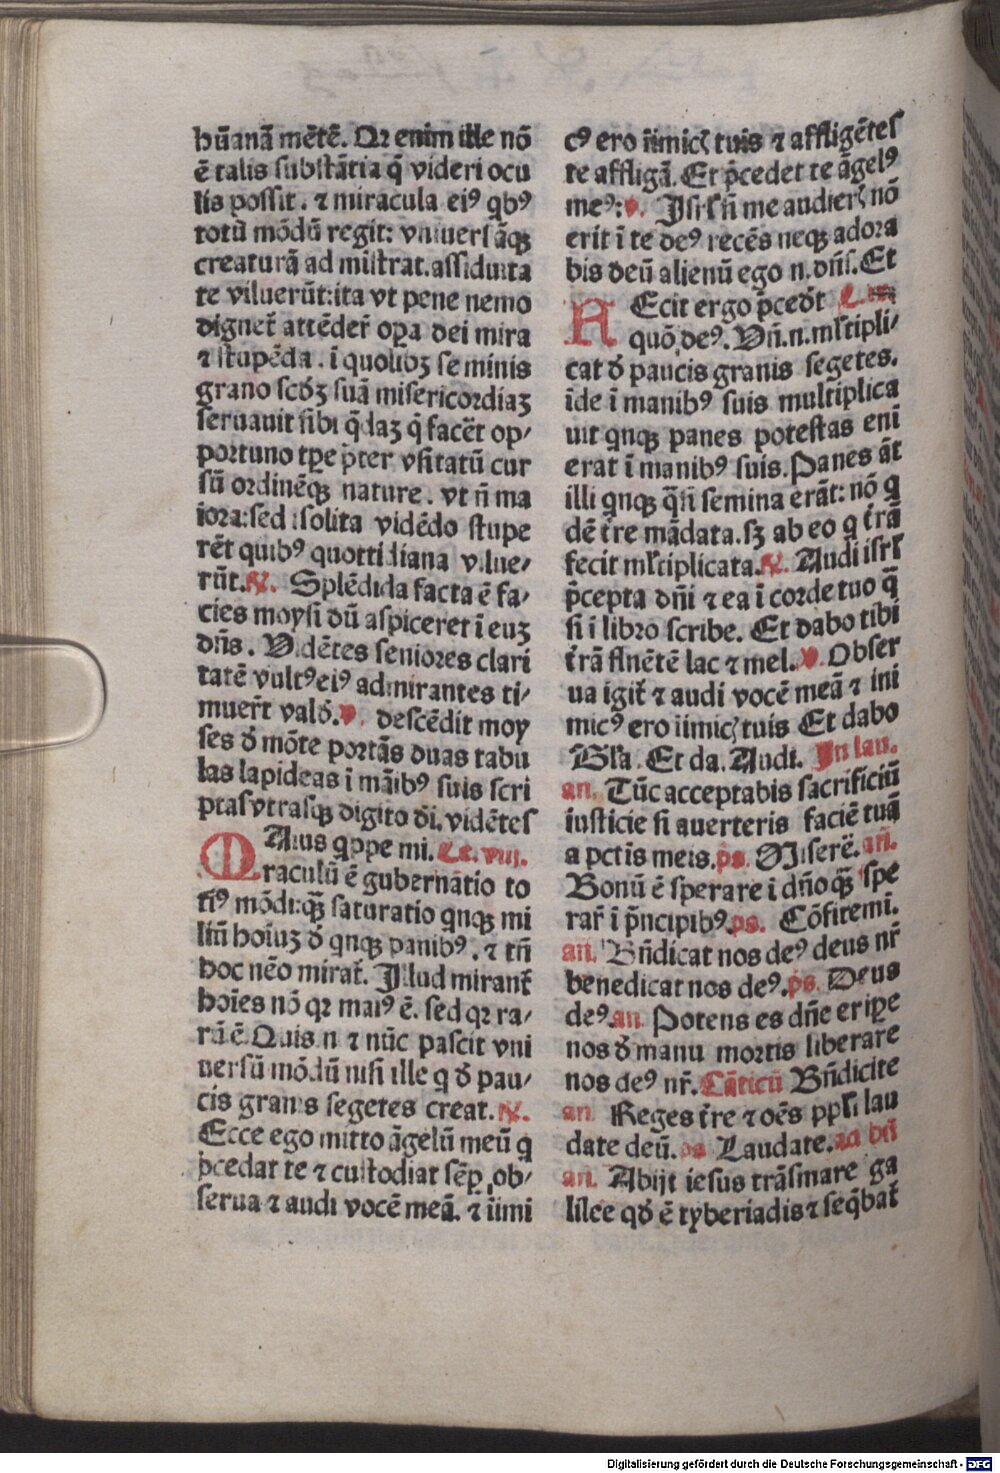 hūanā mētē. Qꝛ enim ille nō
ē talis substātia q̄ videri ocu
lis possit. ⁊ miracula eiꝰ qbꝰ
totū mōdū regit: vniuersāqꝫ
creaturā ad mīstrat. assiduita
te viluerūt: ita vt pene nemo
dignet᷑ attēder᷑ oꝑa dei mira
⁊ stupēda. ī quolibꝫ seminis
grano scdꝫ suā misericordiaꝫ
seruauit sibi q̄daꝫ q̄ facēt op⸗
portuno tꝑe p̄ter vsitatū cur
sū ordinēqꝫ nature. vt ñ ma
iora: sed isolita vidēdo stupe
rēt quibꝰ quottidiana vilue⸗
rūt. ꝶ. Splēdida facta ē fa⸗
cies moysi dū aspiceret ī euꝫ
dn̄s. Vidētes seniores clari
tatē vultꝰ eiꝰ admirantes ti⸗
muer̄t vald̄. v. descēdit moy
ses d̄ mōte portās duas tabu
las lapideas ī māibꝰ suis scri
ptas vtrasqꝫ digito dī. vidētes
MAius qppe mi. Lc. viii.
raculū ē gubernatio to
tiꝰ mōdi: qꝫ̄ saturatio qnqꝫ mi
liū hoīuꝫ d̄ qnqꝫ panibꝰ. ⁊ tn̄
hoc nēo mirat᷑. Illud mirant᷑
hoīes nō qꝛ maiꝰ ē. sed qꝛ ra⸗
rū ē. Quis .n. ⁊ nūc pascit vni
uersū mōdū nisi ille q d̄ pau⸗
cis granis segetes creat. ꝶ.
Ecce ego mitto āgelū meū q
p̄cedat te ⁊ custodiat sēꝑ, ob⸗
serua ⁊ audi vocē meā. ⁊ iīmi
cꝰ ero iīmicꝭ tuis ⁊ affligētes
te affligā. Et p̄cedet te āgelꝰ
meꝰ: v. Isrl̄ si me audierꝭ nō
erit ī te deꝰ recēs neqꝫ adora
bis deū alienū ego .n. dn̄s. Et
FEcit ergo p̄cedt
quō deꝰ. Vn̄ .n. ml̄tipli⸗
cat d̄ paucis granis segetes.
īde ī manibꝰ suis multiplica
uit qnqꝫ panes potestas enī
erat ī manibꝰ suis. Panes āt
illi qnqꝫ q̄si semina erāt: nō q
dē t̄re mādata. sꝫ ab eo q t̄rā
fecit ml̄tiplicata. ꝶ. Audi isrl̄
p̄cepta dn̄i ⁊ ea ī corde tuo q̄
si ī libro scribe. Et dabo tibi
t̄rā flnētē lac ⁊ mel. v. Obser
ua igit᷑ ⁊ audi vocē meā ⁊ ini
micꝰ ero iīmicꝭ tuis Et dabo
Gl̄a. Et da. Audi. In lau.
an. Tūc acceptabis sacrificiū
iusticie si auerteris faciē tuā
a pctīs meis. ps. Miserē. an̄.
Bonū ē sperare ī dn̄o qꝫ̄ spe
rar̄ ī p̄ncipibꝰ. ps. Cōfitemī.
an̄. Bn̄dicat nos deꝰ deus nr̄
benedicat nos deꝰ. ps. Deus
deꝰ. an. Potens es dn̄e eriꝑe
nos d̄ manu mortis liberare
nos deꝰ nr̄. Cāticū Bn̄dicite
an. Reges t̄re ⁊ oēs ppl̄i lau
date deū. ps Laudate. ad bn̄
an. Abijt iesus trāsmare ga
lilee qd̄ ē tyberiadis ⁊ seq̄bat᷑
Digitalisierung gefördert durch die Deutsche Forschungsgemeinschaft - DFG